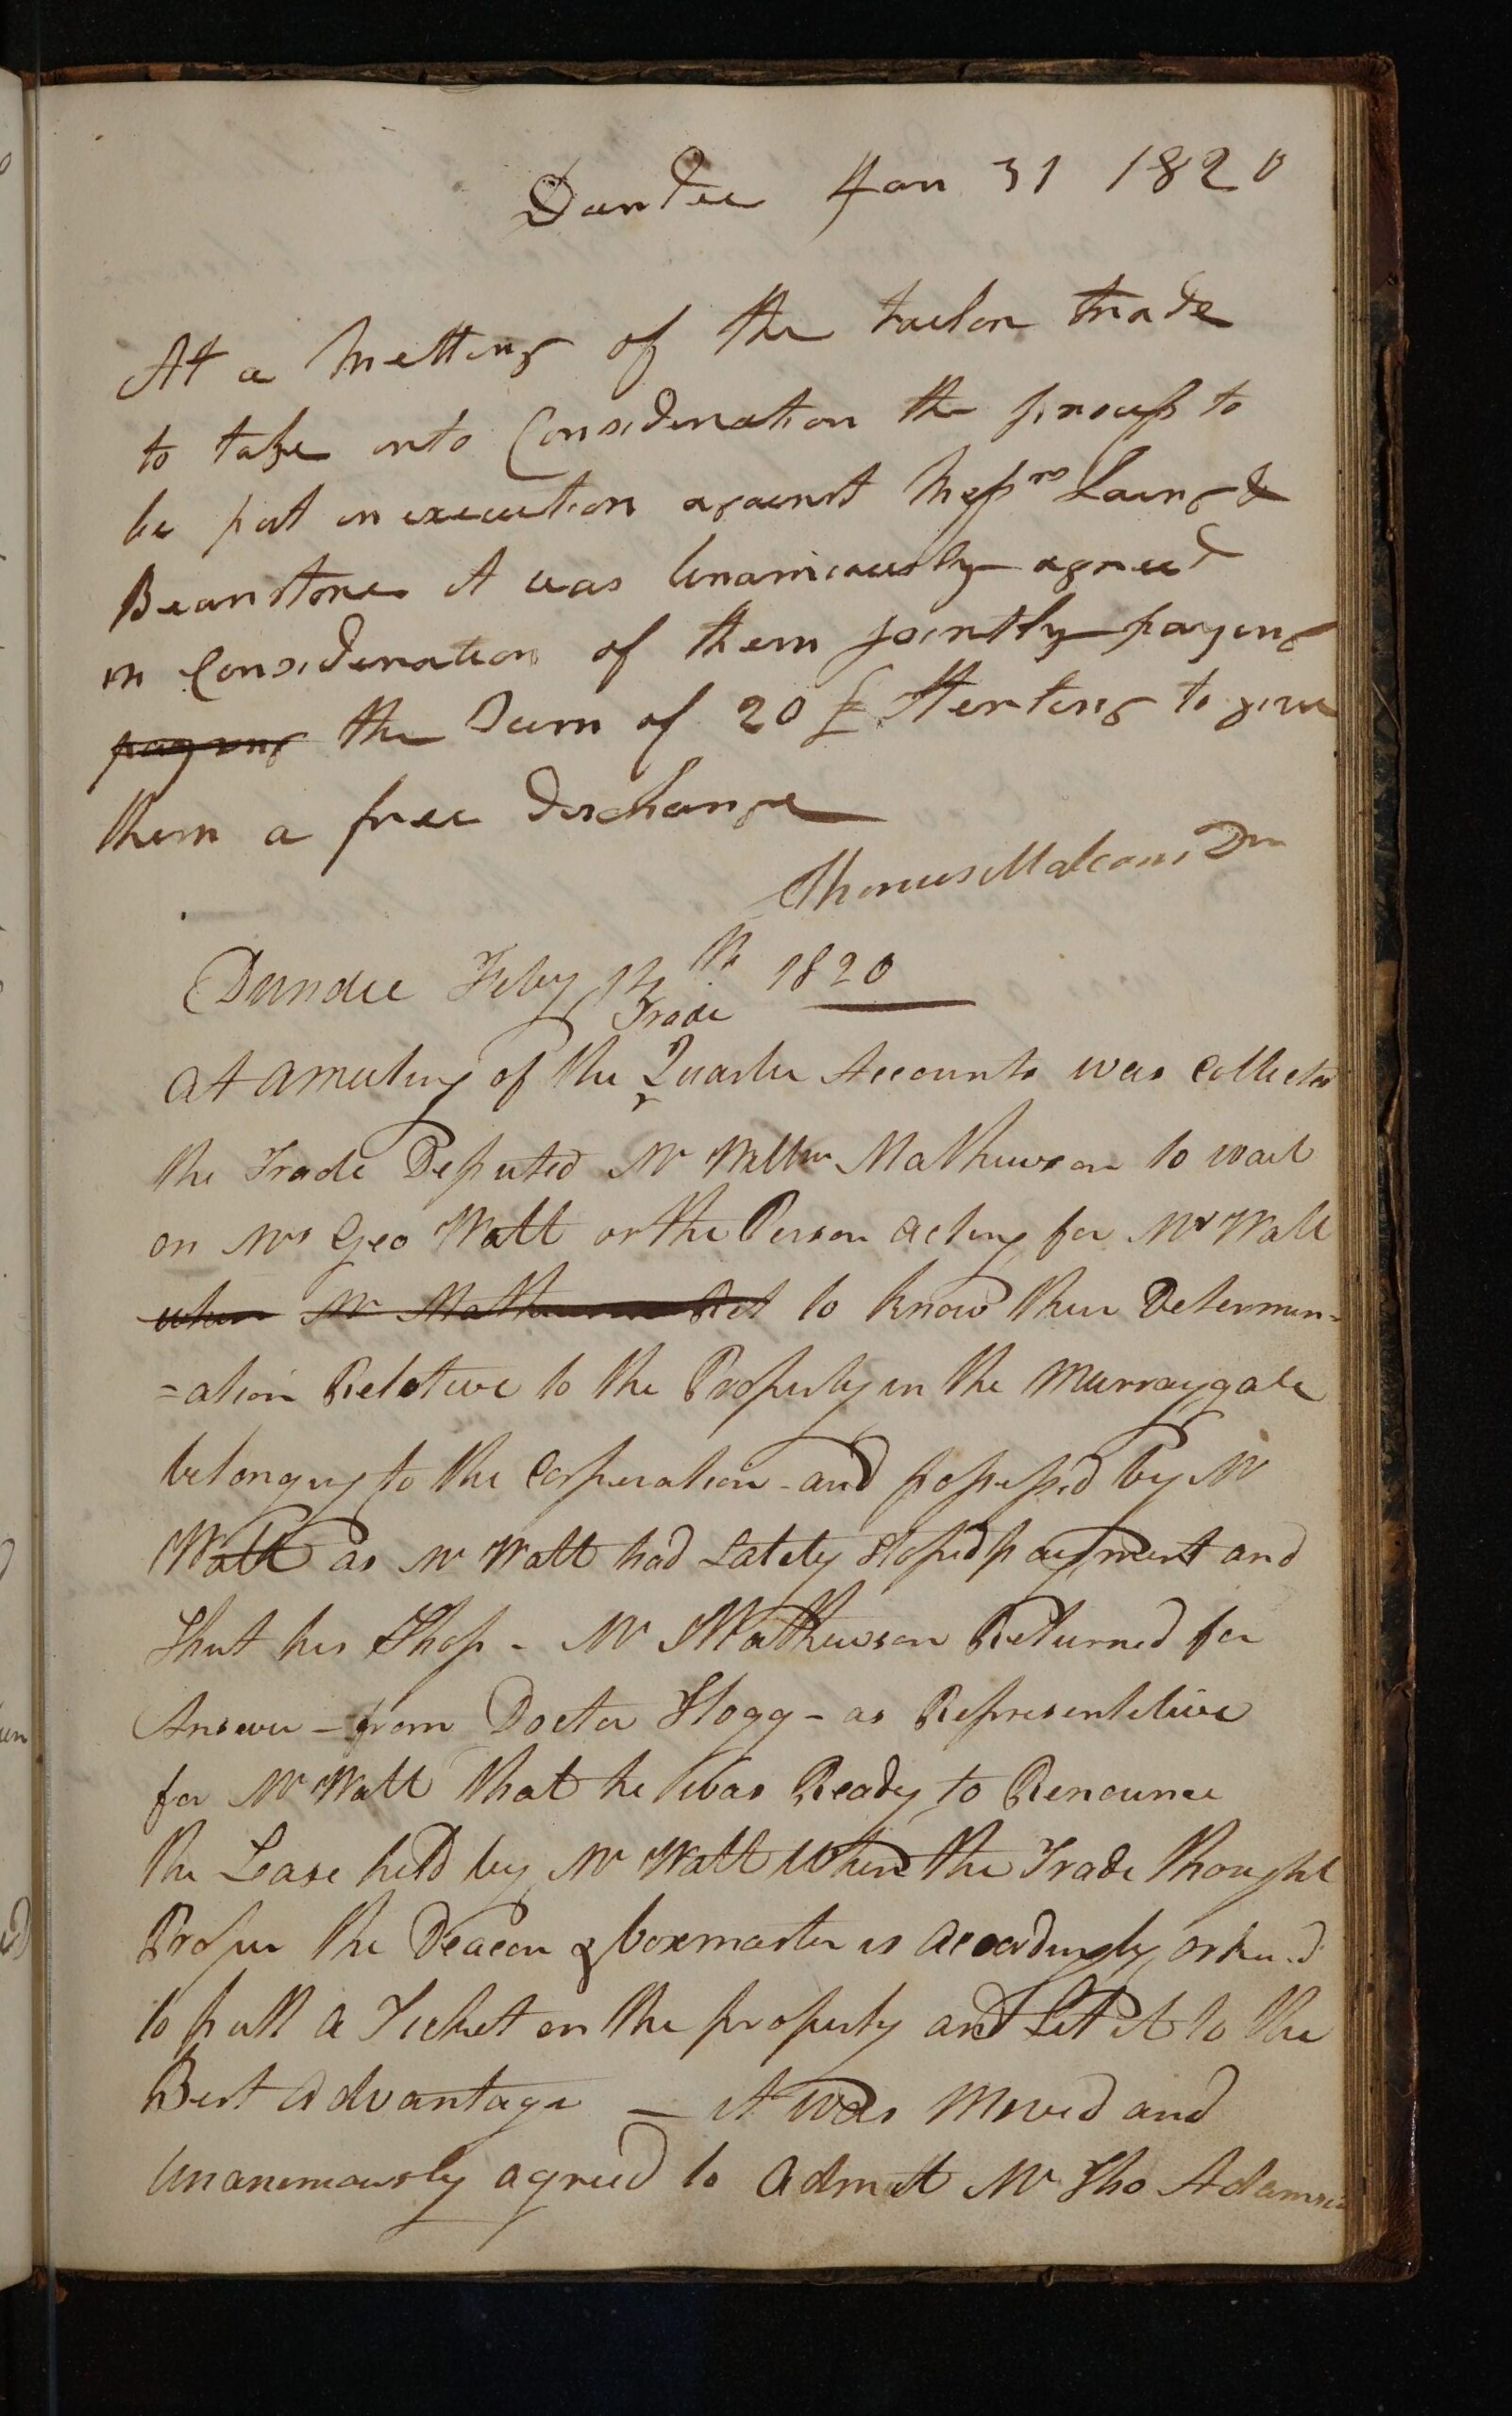 Dundee Jan 31 1820
At a Metting of the tailor trade
to take into Consideration the process to
be put in execution against Messrs Laing &
Beanstone it was Unanimously agreed
in Consideration of them jointly paying
paying the Sum of 20 £ Sterling to give
them a free discharge
Thomas Malcom Dn
Dundee Feby 14th 1820
Trade
At a meeting of the Quarter Accounts was Collected
the Trade Deputed Mr Willm Mathewson to wait
on Mr Geo Watt or the Person acting for Mr Watt
when Mr Mathewson Ret to know their Determin=
=ation Relative to the Property in the Murraygate
belonging to the Corperation - and possessed by Mr
Watt as Mr Watt had Lately stoped payment and
Shut his Shop - Mr Mathewson Returned for
Answer - from Doctor Hogg - as Representitive
for Mr Watt that he was Ready to Renounce
the Lease held by Mr Watt when the Trade thought
Proper the Deacon & boxmaster is accordingly
to putt a Ticket on the property and Let it to the
Best advantage — it was Moved and
Unanimously agreed to admit Mr Tho Adamson